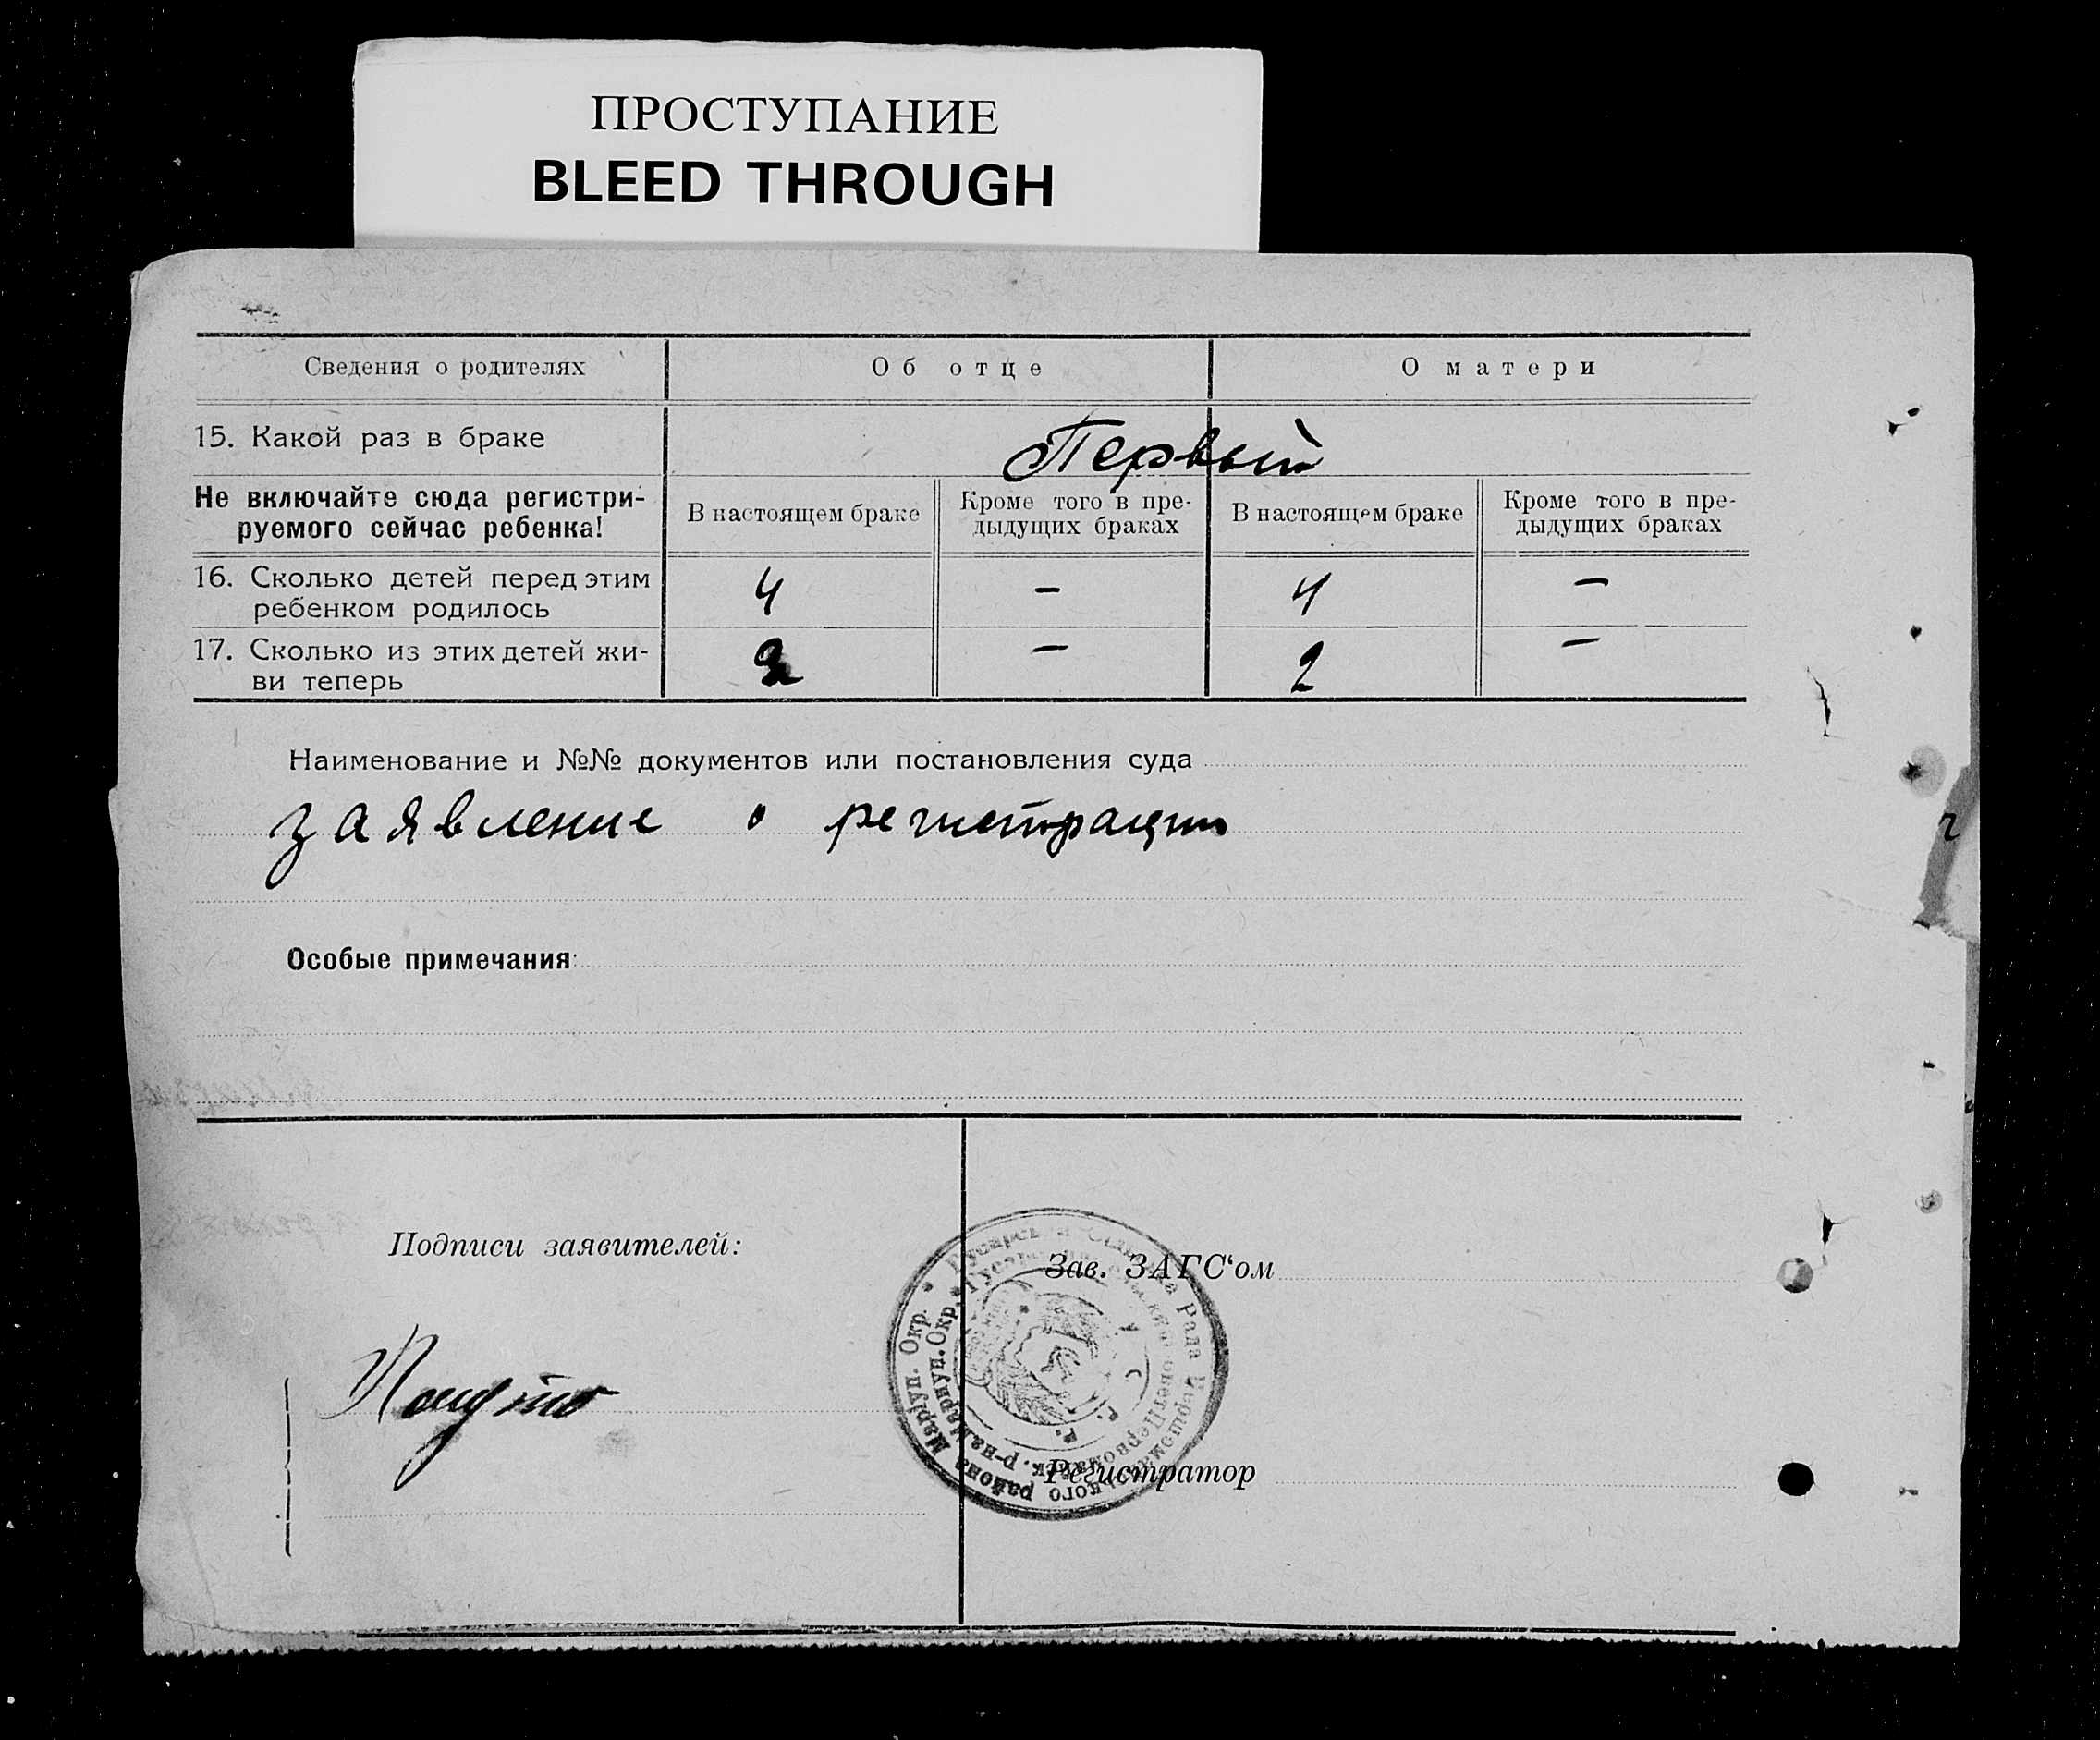 ПРОСТУПАНИЕ
BLEED THROUGH
Сведения о родителях
Об отце
О матери
15. Какой раз в браке
Первый
Не включайте сюда регистри-
руемого сейчас ребенка!
В настоящем браке
Кроме того в пре-
дыдущих браках
В настоящем браке
Кроме того в пре-
дыдущих браках
16. Сколько детей перед этим
ребенком родилось
4
–
4
–
17. Сколько из этих детей жи-
ви теперь
2
–
2
–
Наименование и №№ документов или постановления суда
заявление о регистрации
Особые примечания:
Подписи заявителей:
Зав. ЗАГС‘ом
Регистратор
Рада
района Маріуп. Окр.
р-на Мариуп. Окр.